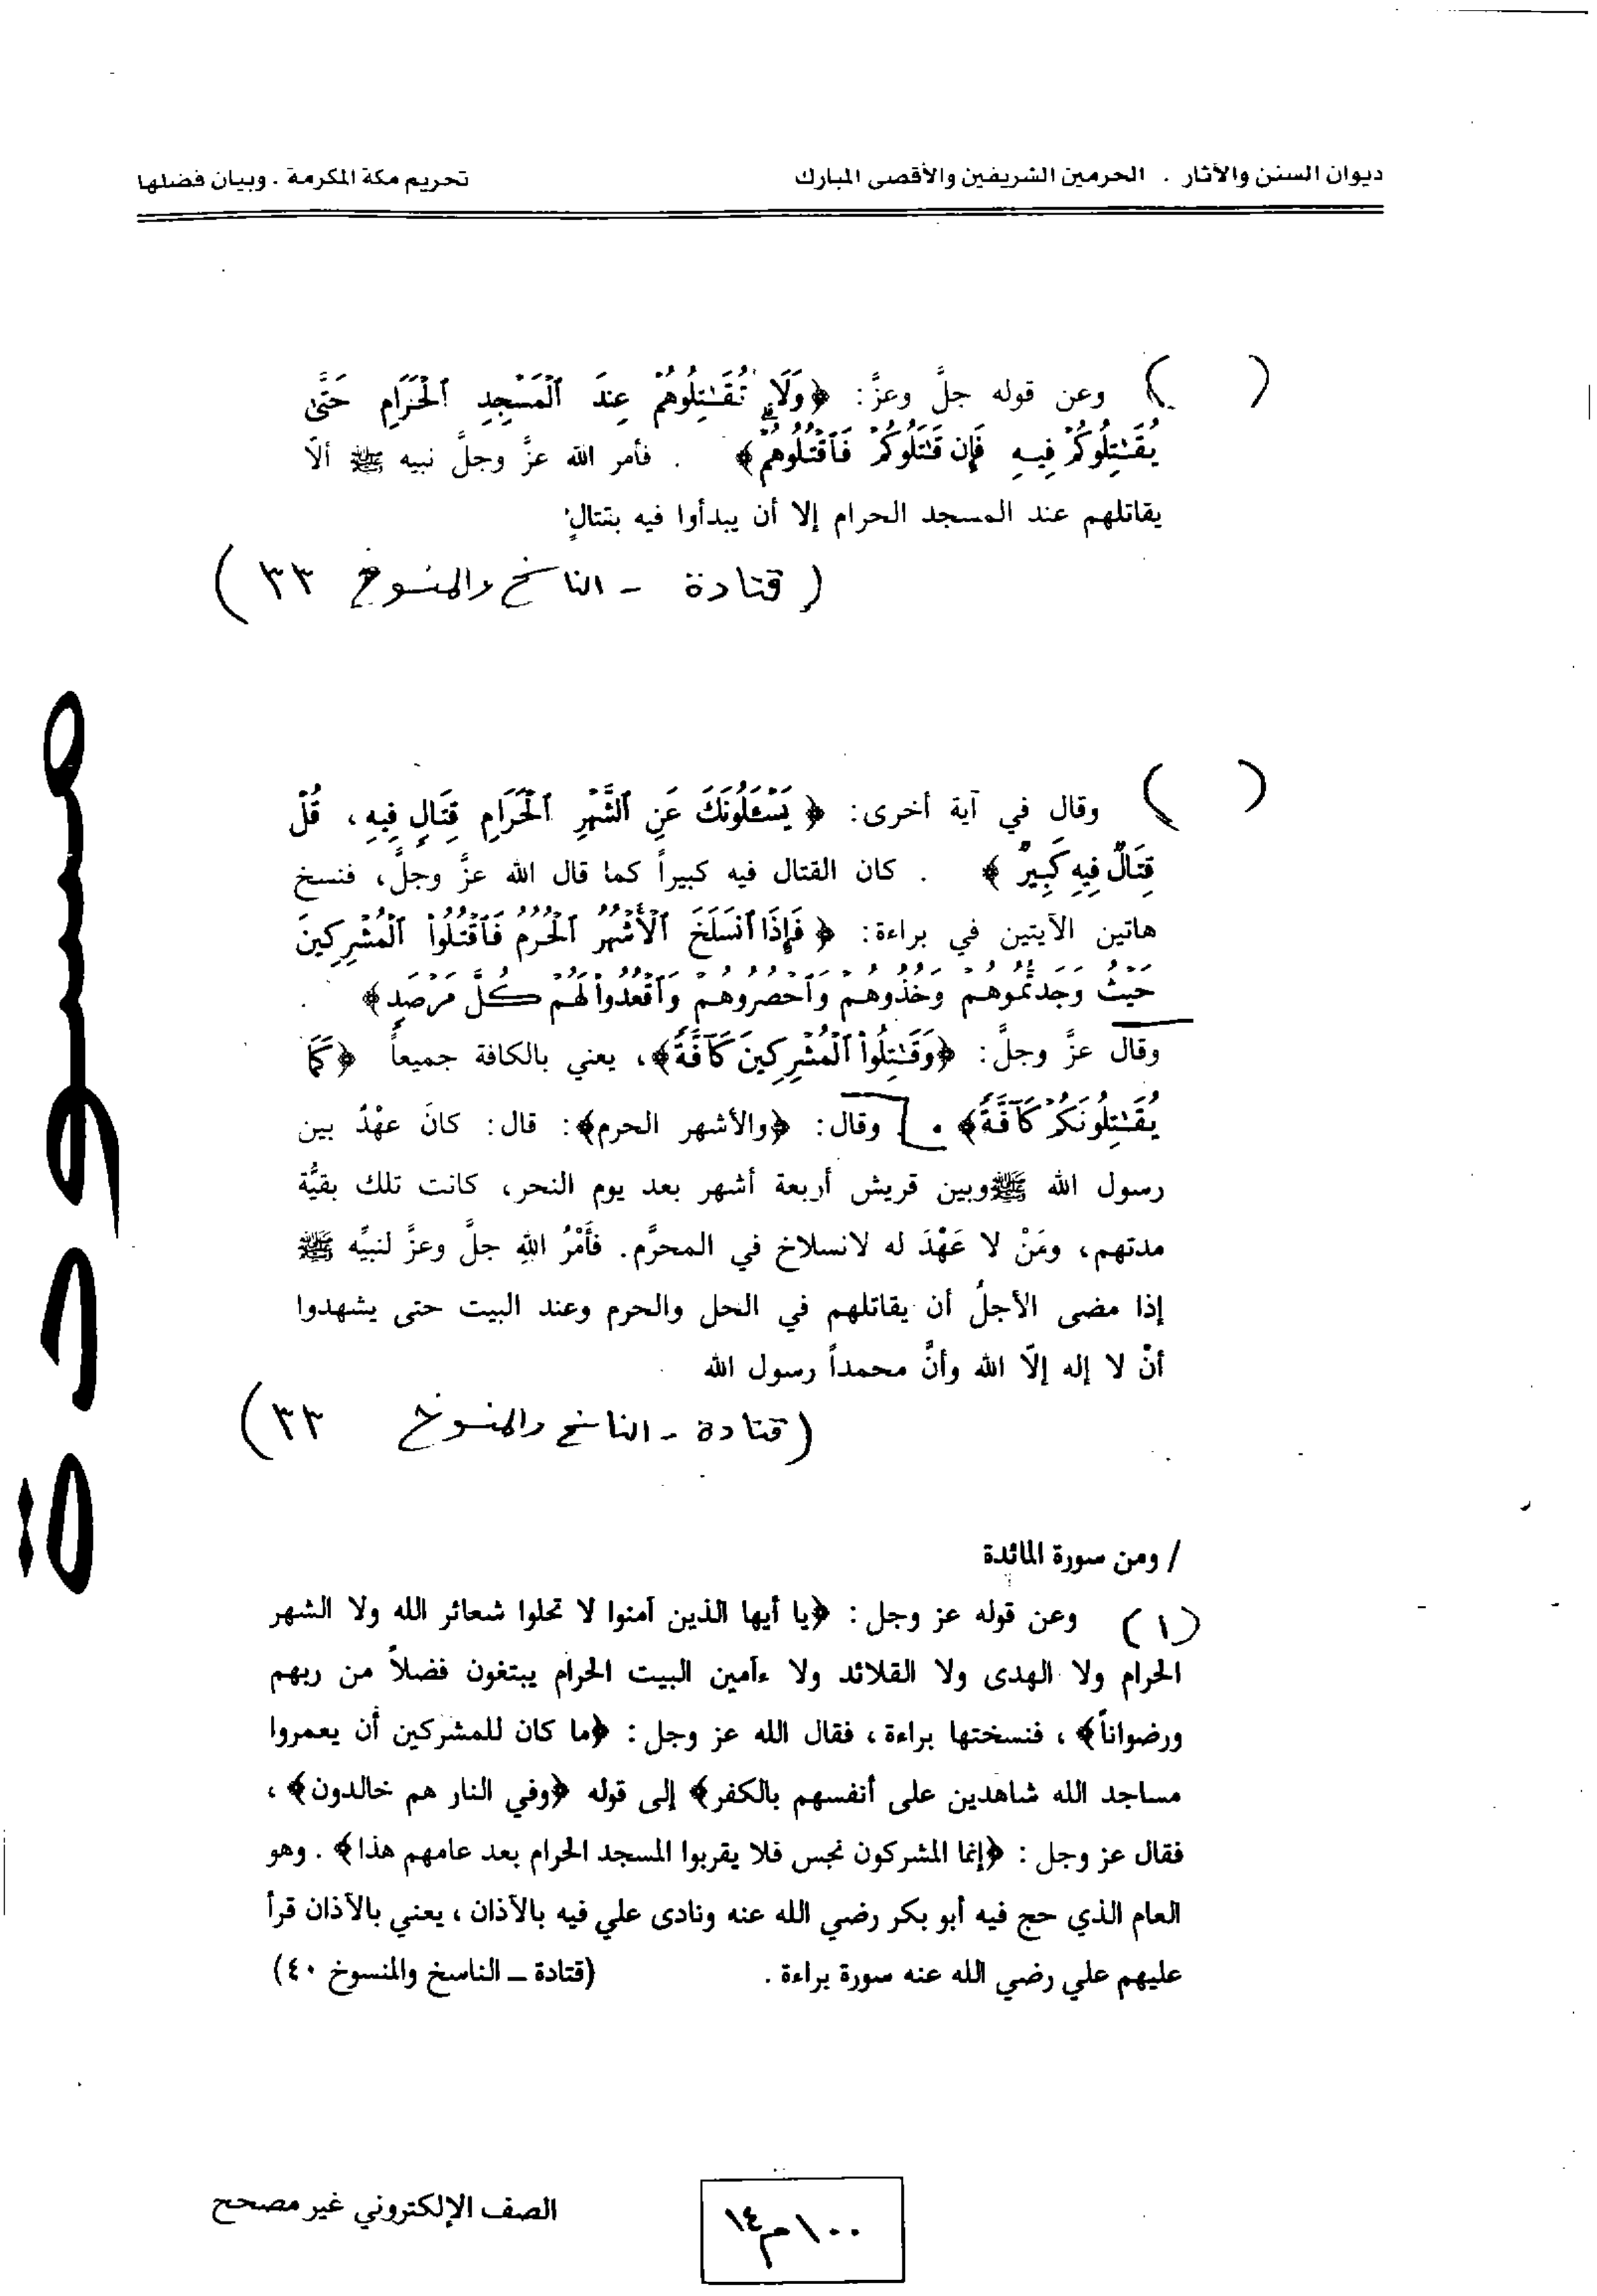 ديوان السنن والآثار . الحرمين الشريفين والأقصى المبارك
تحريم مكة المكرمة . وبيان فضلها
( ) وعن قوله جلَّ وعزَّ: ﴿وَلَا تُقَٰتِلُوهُمْ عِندَ ٱلْمَسْجِدِ ٱلْحَرَامِ حَتَّىٰ
يُقَٰتِلُوكُمْ فِيهِ فَإِن قَٰتَلُوكُمْ فَٱقْتُلُوهُمْ﴾ . فأمر الله عزَّ وجلَّ نبيه ﷺ ألّا
يقاتلهم عند المسجد الحرام إلا أن يبدأوا فيه بقتالٍ
(قتادة - الناسخ والمنسوخ ٣٣)
( ) وقال في آية أخرى: ﴿يَسْـَٔلُونَكَ عَنِ ٱلشَّهْرِ ٱلْحَرَامِ قِتَالٍ فِيهِ، قُلْ
قِتَالٌ فِيهِ كَبِيرٌ﴾ . كان القتال فيه كبيراً كما قال الله عزَّ وجلَّ، فنسخ
هاتين الآيتين في براءة: ﴿فَإِذَا ٱنسَلَخَ ٱلْأَشْهُرُ ٱلْحُرُمُ فَٱقْتُلُوا۟ ٱلْمُشْرِكِينَ
حَيْثُ وَجَدتُّمُوهُمْ وَخُذُوهُمْ وَٱحْصُرُوهُمْ وَٱقْعُدُوا۟ لَهُمْ كُلَّ مَرْصَدٍ﴾ .
وقال عزَّ وجلَّ: ﴿وَقَٰتِلُوا۟ ٱلْمُشْرِكِينَ كَآفَّةً﴾، يعني بالكافة جميعاً ﴿كَمَا
يُقَٰتِلُونَكُمْ كَآفَّةً﴾ . وقال: ﴿والأشهر الحرم﴾: قال: كانَ عهْدٌ بين
رسول الله ﷺ وبين قريش أربعة أشهر بعد يوم النحر، كانت تلك بقيَّة
مدتهم، ومَنْ لا عَهْدَ له لانسلاخ في المحرَّم. فأَمْرُ اللهِ جلَّ وعزَّ لنبيِّه ﷺ
إذا مضى الأجلُ أن يقاتلهم في الحل والحرم وعند البيت حتى يشهدوا
أنْ لا إله إلّا الله وأنَّ محمداً رسول الله
(قتادة - الناسخ والمنسوخ ٣٣)
/ ومن سورة المائدة
(١) وعن قوله عز وجل : ﴿يا أيها الذين آمنوا لا تحلوا شعائر الله ولا الشهر
الحرام ولا الهدى ولا القلائد ولا ءآمين البيت الحرام يبتغون فضلاً من ربهم
ورضواناً﴾ ، فنسختها براءة ، فقال الله عز وجل : ﴿ما كان للمشركين أن يعمروا
مساجد الله شاهدين على أنفسهم بالكفر﴾ إلى قوله ﴿وفي النار هم خالدون﴾ ،
فقال عز وجل : ﴿إنما المشركون نجس فلا يقربوا المسجد الحرام بعد عامهم هذا﴾ . وهو
العام الذي حج فيه أبو بكر رضي الله عنه ونادى علي فيه بالآذان ، يعني بالآذان قرأ
عليهم علي رضي الله عنه سورة براءة . (قتادة ـ الناسخ والمنسوخ ٤٠)
مسودة
١٠٠م١٤
الصف الإلكتروني غير مصحح